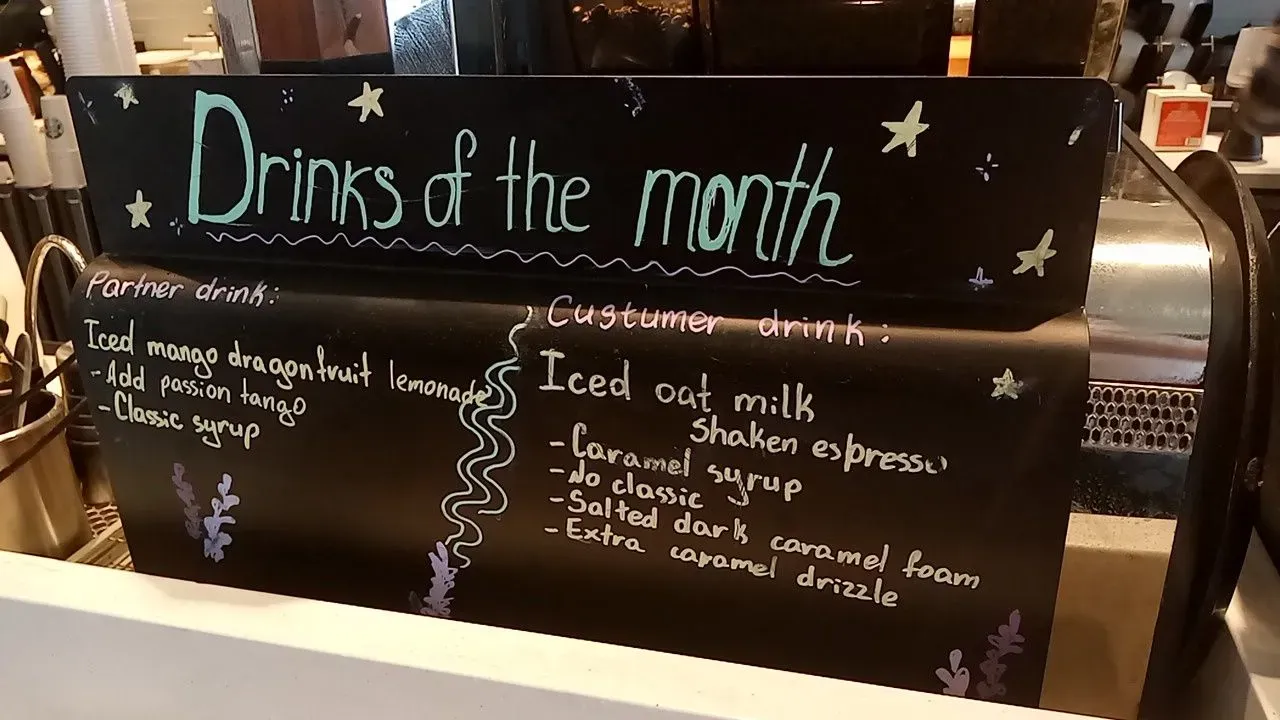 Drinks of the month
Partner drink:
Iced mango dragonfruit lemonade
- Add passion tango
- Classic syrup
Custumer drink:
Iced oat milk
Shaken espresso
- Caramel syrup
- No classic
- Salted dark caramel foam
- Extra caramel drizzle